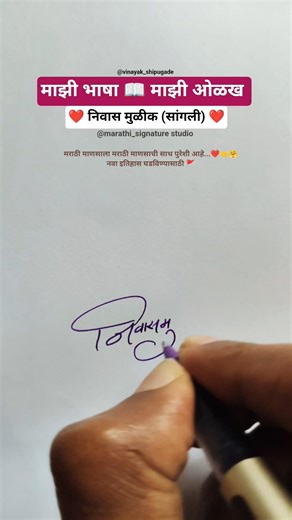 @vinayak_shipugade
माझी भाषा 📖 माझी ओळख
❤️ निवास मुळीक (सांगली) ❤️
@marathi_signature studio
मराठी माणसाला मराठी माणसाची साथ पुरेशी आहे...❤️🤝🤗
नवा इतिहास घडविण्यासाठी 🚩
निवासमु